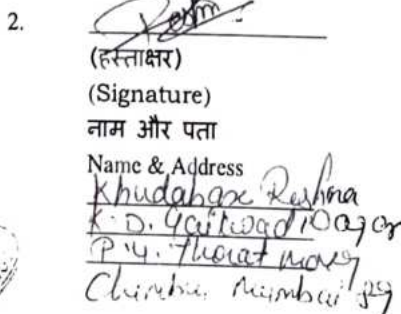 2.
(हस्ताक्षर)
(Signature)
नाम और पता
Name & Address
Khudabaxe Reshma
K. D. Gaikwad Nagar
P. Y. Thorat marg
Mumbai 89